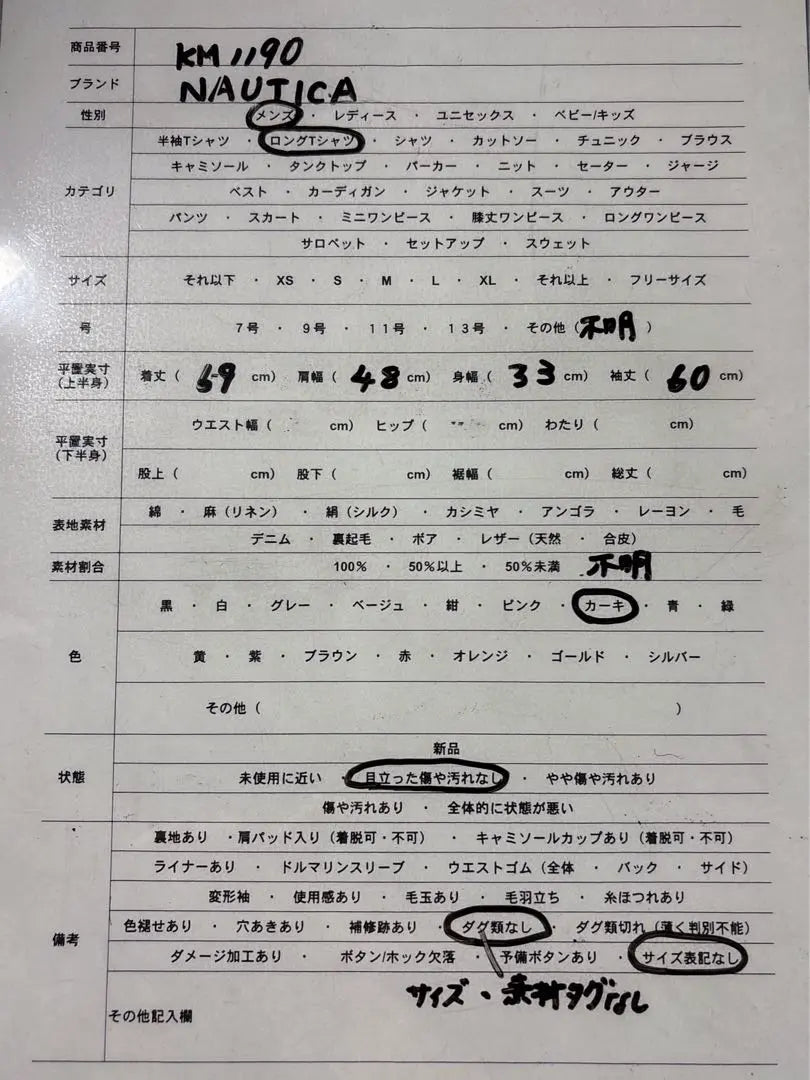 商品番号 KM1190
ブランド NAUTICA
性別 メンズ ・ レディース ・ ユニセックス ・ ベビー/キッズ
カテゴリ
半袖Tシャツ ・ ロングTシャツ ・ シャツ ・ カットソー ・ チュニック ・ ブラウス
キャミソール ・ タンクトップ ・ パーカー ・ ニット ・ セーター ・ ジャージ
ベスト ・ カーディガン ・ ジャケット ・ スーツ ・ アウター
パンツ ・ スカート ・ ミニワンピース ・ 膝丈ワンピース ・ ロングワンピース
サロペット ・ セットアップ ・ スウェット
サイズ それ以下 ・ XS ・ S ・ M ・ L ・ XL ・ それ以上 ・ フリーサイズ
号 7号 ・ 9号 ・ 11号 ・ 13号 ・ その他（不明）
平置実寸
（上半身）
着丈（ 69 cm） 肩幅（ 48 cm） 身幅（ 33 cm） 袖丈（ 60 cm）
平置実寸
（下半身）
ウエスト幅（ cm） ヒップ（ cm） わたり（ cm）
股上（ cm） 股下（ cm） 裾幅（ cm） 総丈（ cm）
表地素材
綿 ・ 麻（リネン） ・ 絹（シルク） ・ カシミヤ ・ アンゴラ ・ レーヨン ・ 毛
デニム ・ 裏起毛 ・ ボア ・ レザー（天然 ・ 合皮）
素材割合 100% ・ 50%以上 ・ 50%未満 不明
色
黒 ・ 白 ・ グレー ・ ベージュ ・ 紺 ・ ピンク ・ カーキ ・ 青 ・ 緑
黄 ・ 紫 ・ ブラウン ・ 赤 ・ オレンジ ・ ゴールド ・ シルバー
その他（ ）
状態
新品
未使用に近い ・ 目立った傷や汚れなし ・ やや傷や汚れあり
傷や汚れあり ・ 全体的に状態が悪い
備考
裏地あり ・肩パッド入り（着脱可・不可） ・ キャミソールカップあり（着脱可・不可）
ライナーあり ・ ドルマリンスリーブ ・ ウエストゴム（全体 ・ バック ・ サイド）
変形袖 ・ 使用感あり ・ 毛玉あり ・ 毛羽立ち ・ 糸ほつれあり
色褪せあり ・ 穴あきあり ・ 補修跡あり ・ ダグ類なし ・ ダグ類切れ（薄く判別不能）
ダメージ加工あり ・ ボタン/ホック欠落 ・ 予備ボタンあり ・ サイズ表記なし
サイズ・素材タグなし
その他記入欄